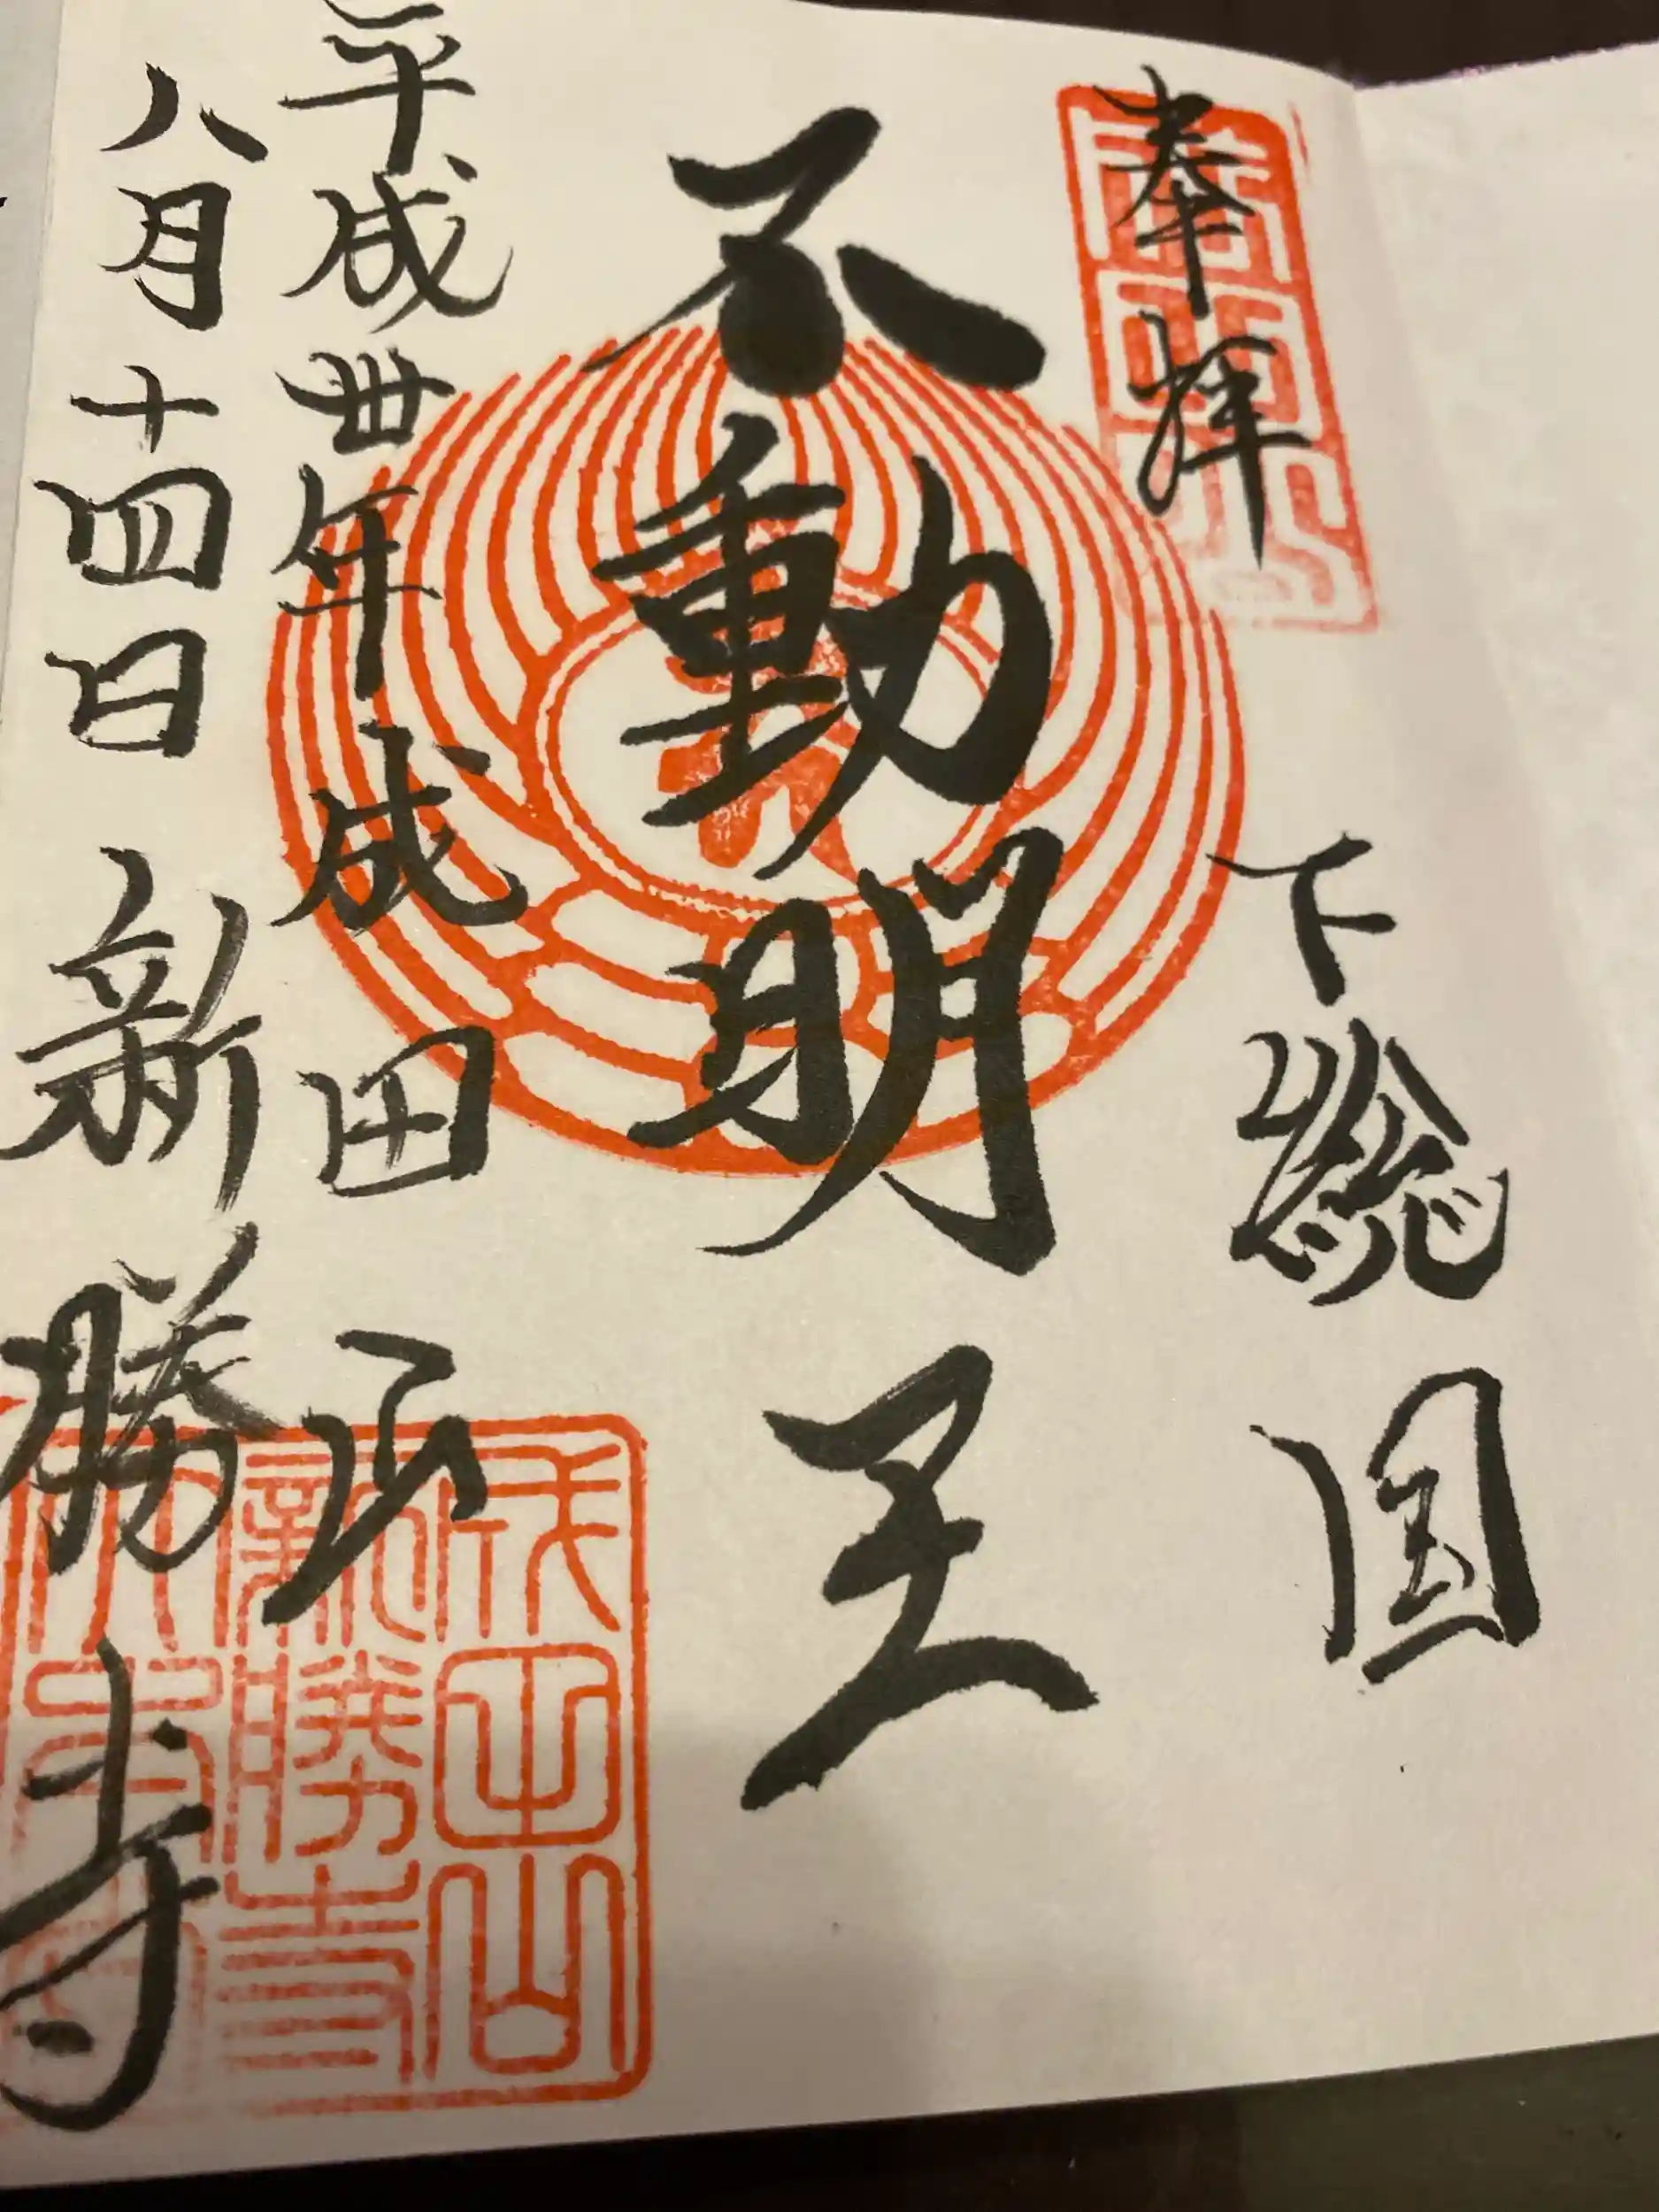 奉拝
下総国
不動明王
平成丗年成田山
八月十四日新勝寺
成田山
新勝寺